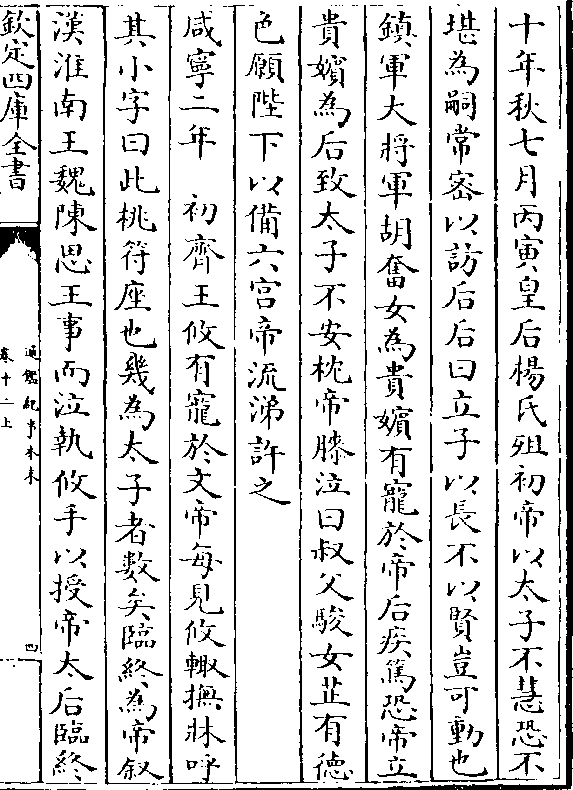 十年秋七月丙寅皇后楊氏殂初帝以太子不慧恐不
堪為嗣常密以訪后后曰立子以長不以賢豈可動也
鎮軍大將軍胡奮女為貴嬪有寵於帝后疾篤恐帝立
貴嬪為后致太子不安枕帝膝泣曰叔父駿女芷有德
色願陛下以備六宮帝流涕許之
咸寧二年　初齊王攸有寵於文帝每見攸輙撫牀呼
其小字曰此桃符座也幾為太子者數矣臨終為帝叙
漢淮南王魏陳思王事而泣執攸手以授帝太后臨終
欽定四庫全書
通鑑紀事本末
卷十二上
四